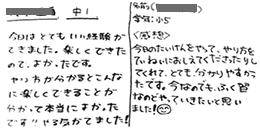 中1
今日はとてもいい経験が
できました。楽しくできた
ので、よかったです。
やり方が分かるとこんな
に楽しくできることが
分かって本当によかった
です!!やる気がでました!
名前(
学年:小5
<感想>
今日のたいけんをやって、やり方を
ていねいにおしえてくださったりし
てくれて、とても分かりやすかっ
たです。今はなのでも、ふく習
なのどやっていきたいと思い
ました!